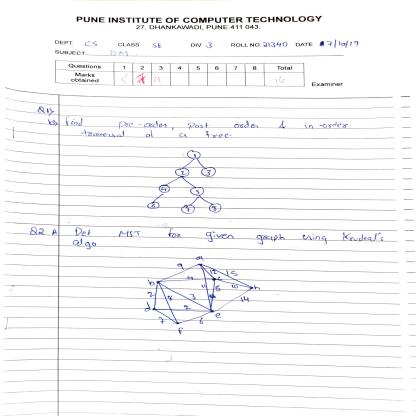 PUNE INSTITUTE OF COMPUTER TECHNOLOGY
27, DHANKAWADI, PUNE 411 043.
DEPT. CS CLASS SE DIV 3 ROLL NO. 21340 DATE 17/10/19
SUBJECT DM
Questions 1 2 3 4 5 6 7 8 Total
Marks obtained
Examiner
Q1)
b) Find pre-order, post order & in-order
traversal of a tree.
1
2 3
4 5
6 7 8
Q2 A Det MST for given graph using Kruskal's
algo
a
9 15
b h
2 3 14
d 2 e
7 6
f